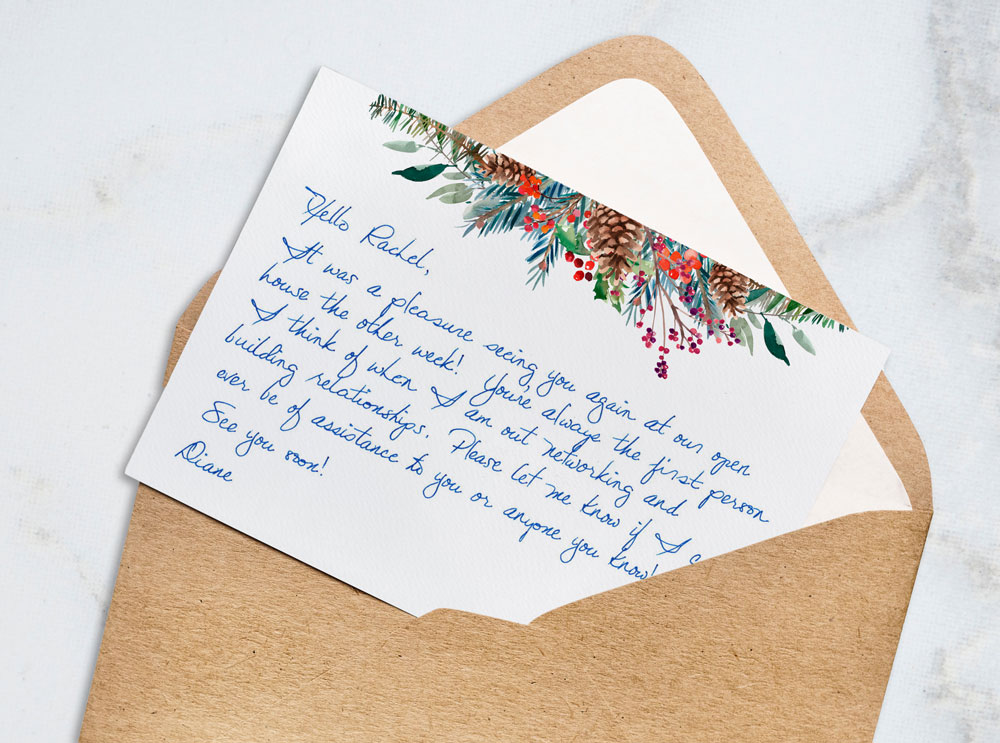 Hello Rachel,
It was a pleasure seeing you again at our open
house the other week! You're always the first person
I think of when I am out networking and
building relationships. Please let me know if I
ever be of assistance to you or anyone you know!
See you soon!
Diane